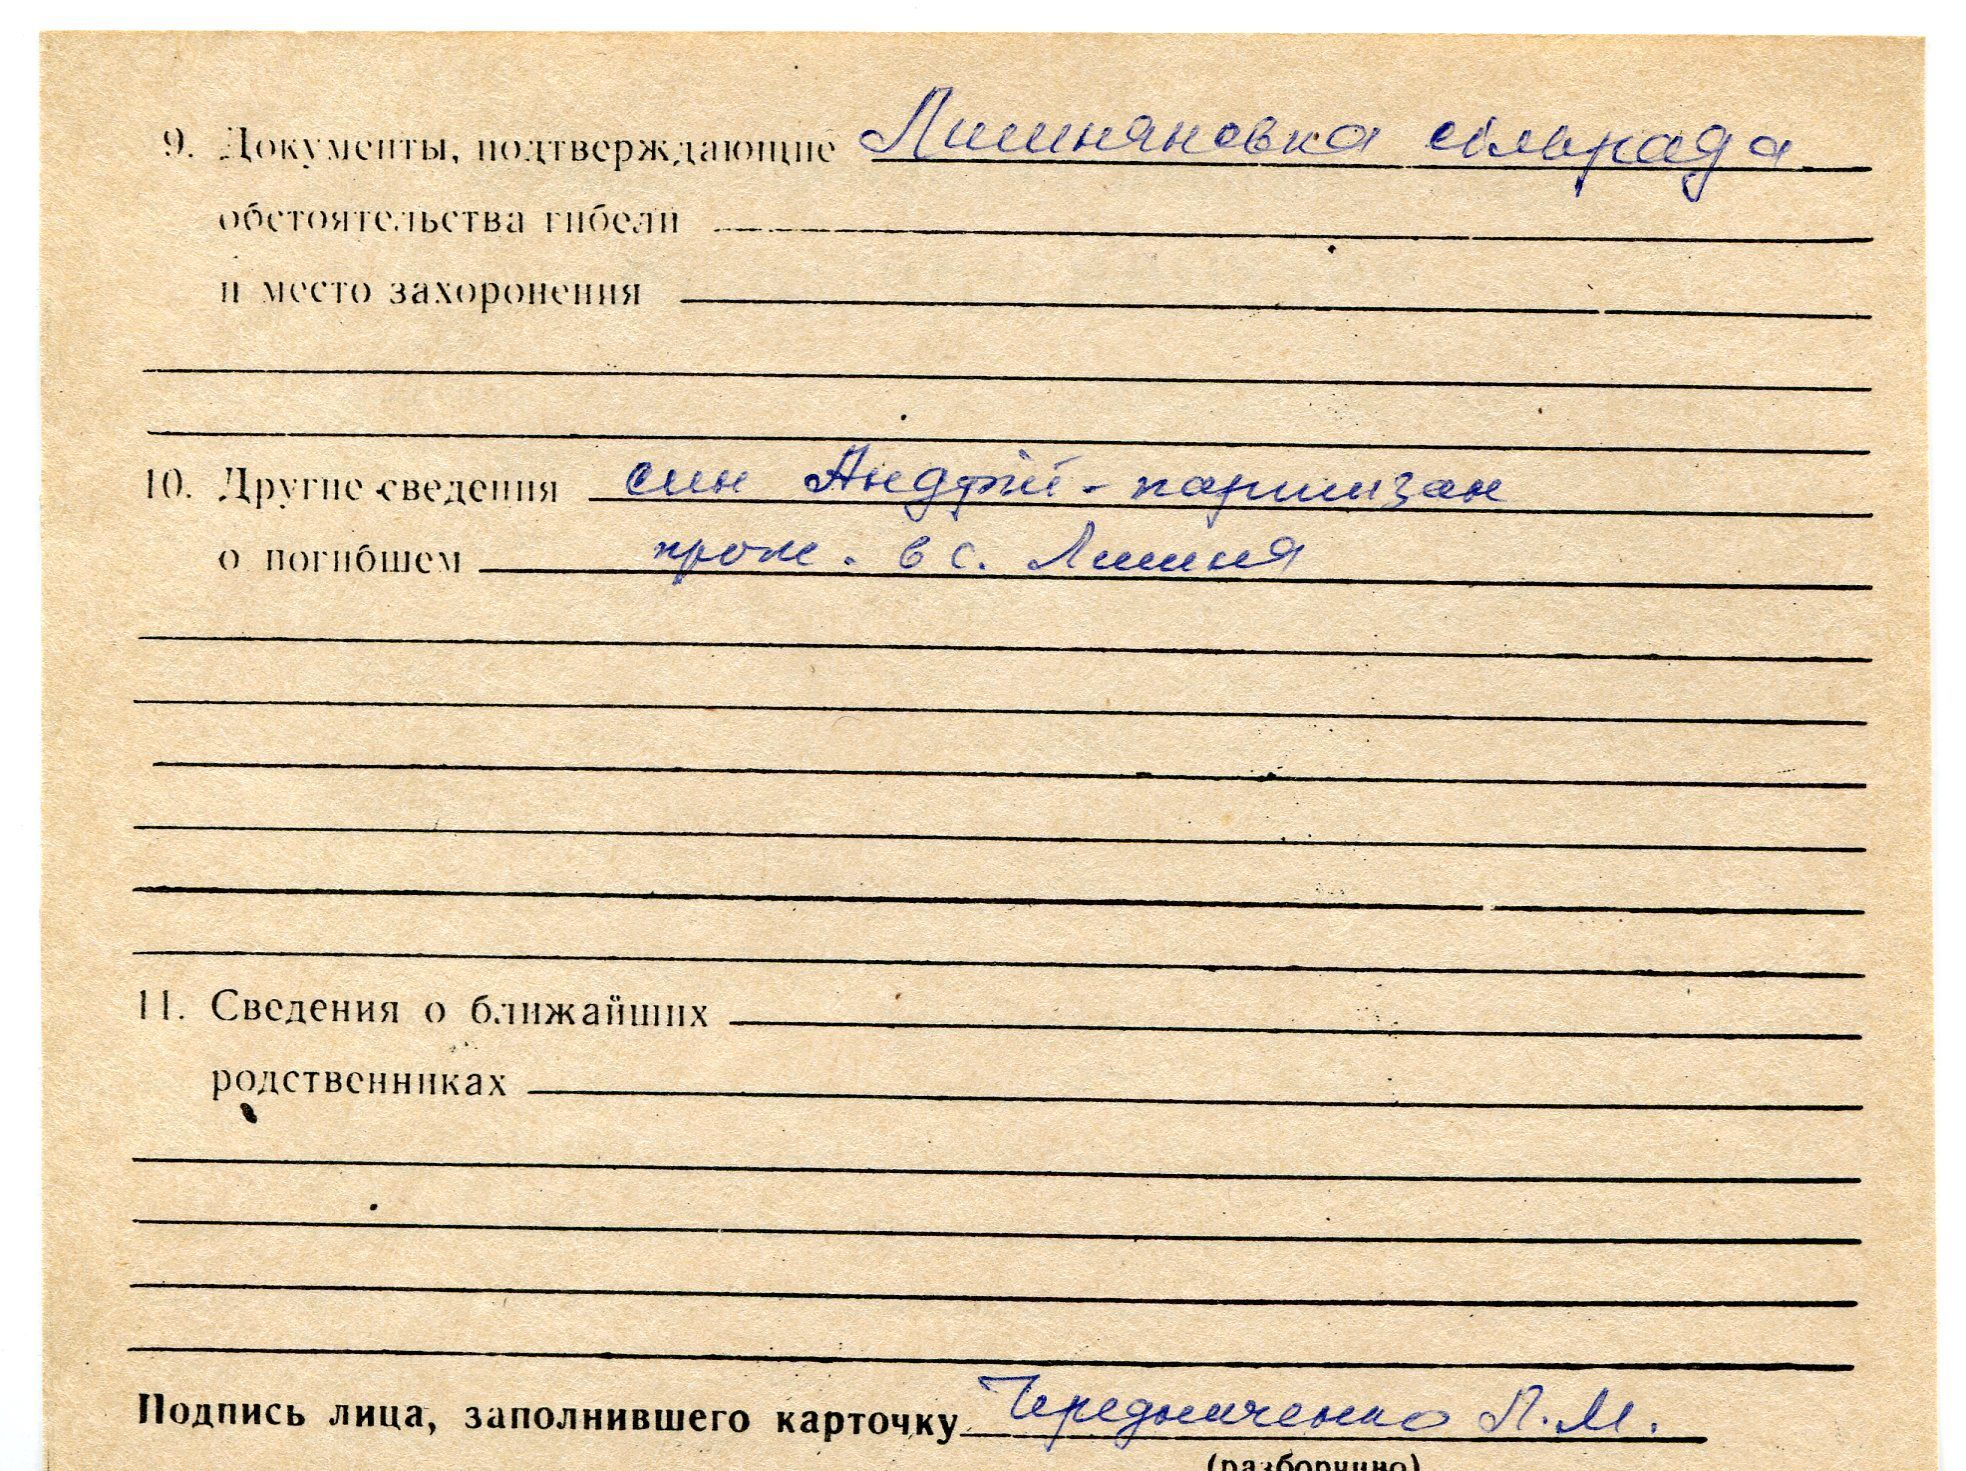 9. Документы, подтверждающие Лишняновка сільрада
обстоятельства гибели
и место захоронения
10. Другие сведения син Андрій - партизан
о погибшем прож. в с. Лишня
11. Сведения о ближайших
родственниках
Подпись лица, заполнившего карточку Чередниченко Л.М.
(разборчиво)